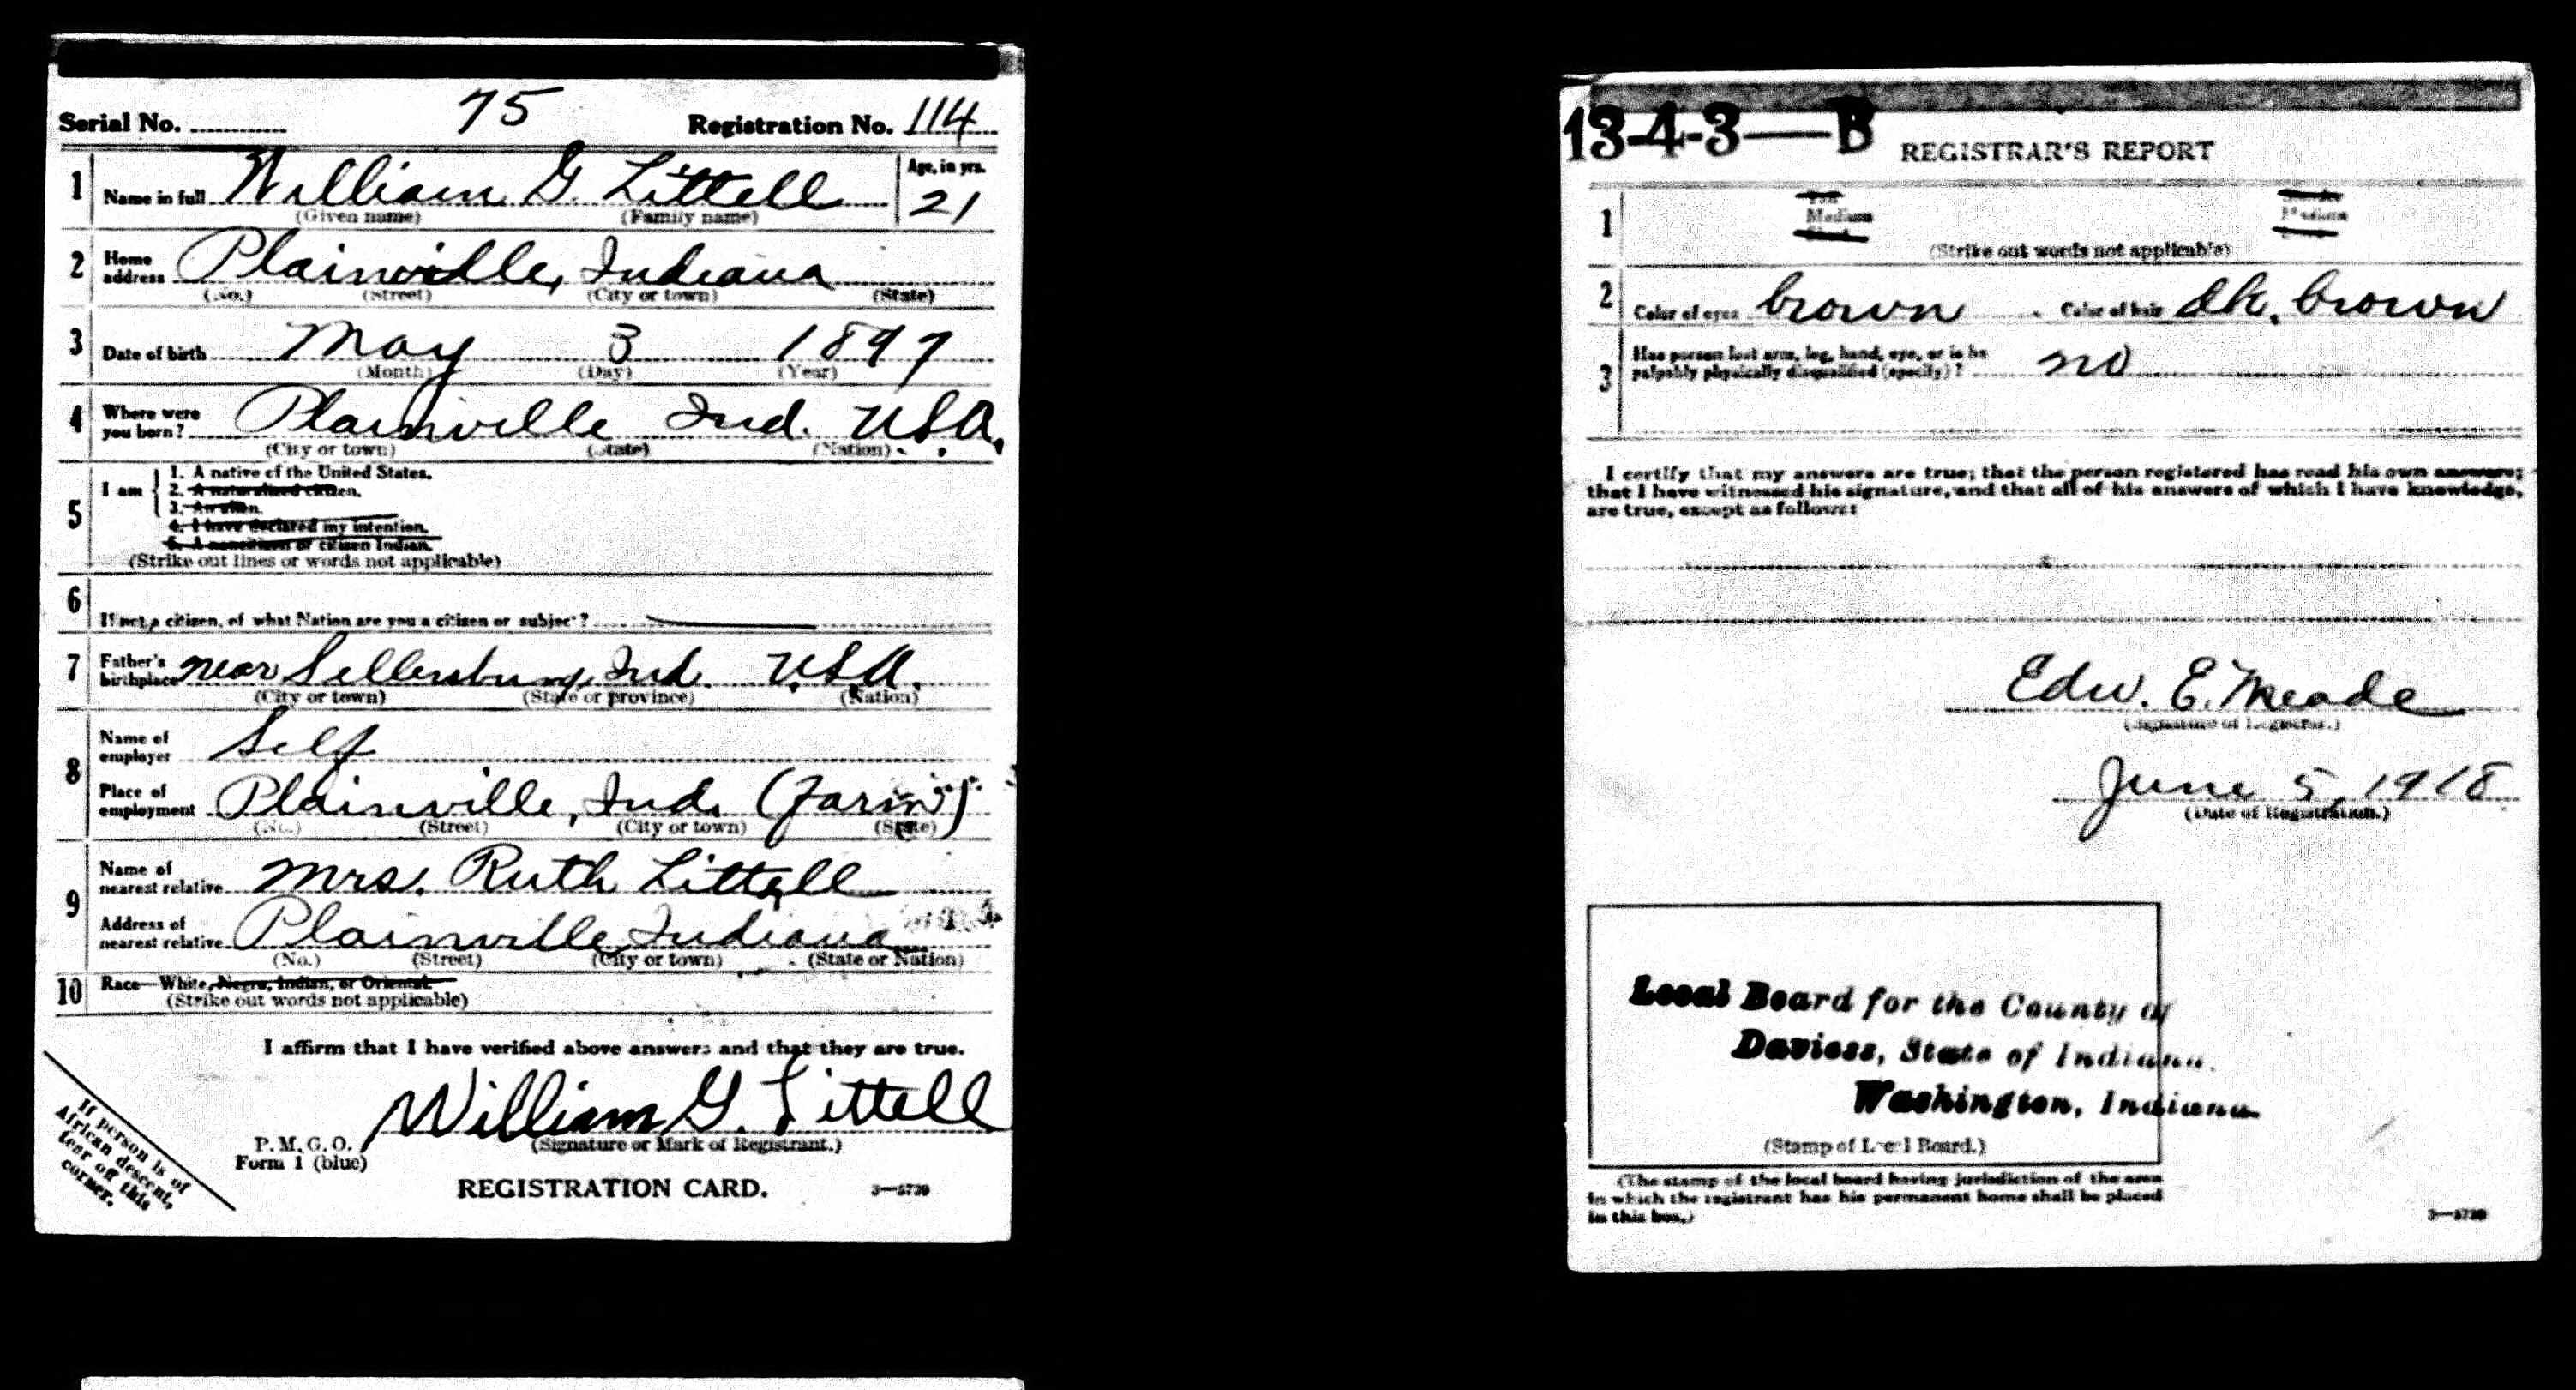 Serial No. 75 Registration No. 114
1 Name in full William G. Littell Age, in yrs. 21
(Given name) (Family name)
2 Home address Plainville, Indiana
(No.) (Street) (City or town) (State)
3 Date of birth May 3 1897
(Month) (Day) (Year)
4 Where were you born? Plainville Ind. U.S.A.
(City or town) (State) (Nation)
5 I am
1. A native of the United States.
2. A naturalized citizen.
3. An alien.
4. I have declared my intention.
5. A noncitizen or citizen Indian.
(Strike out lines or words not applicable)
6 If not a citizen, of what Nation are you a citizen or subject?
7 Father's birthplace near Sellersburg, Ind. U.S.A.
(City or town) (State or province) (Nation)
8 Name of employer Self
Place of employment Plainville, Ind. (Farm)
(No.) (Street) (City or town) (State)
9 Name of nearest relative Mrs. Ruth Littell
Address of nearest relative Plainville, Indiana
(No.) (Street) (City or town) (State or Nation)
10 Race—White, Negro, Indian, or Oriental.
(Strike out words not applicable)
I affirm that I have verified above answers and that they are true.
William G. Littell
(Signature or Mark of Registrant.)
P. M. G. O.
Form 1 (blue)
REGISTRATION CARD. 3—5739
If person is of
African descent,
tear off this
corner.
13-4-3—B
REGISTRAR'S REPORT
1 Medium Medium
(Strike out words not applicable)
2 Color of eyes brown Color of hair dk. brown
3 Has person lost arm, leg, hand, eye, or is he
palpably physically disqualified (specify)? no
I certify that my answers are true; that the person registered has read his own answers;
that I have witnessed his signature, and that all of his answers of which I have knowledge,
are true, except as follows:
Edw. E. Meade
(Signature of Registrar.)
June 5, 1918
(Date of Registration.)
Local Board for the County of
Daviess, State of Indiana.
Washington, Indiana.
(Stamp of Local Board.)
(The stamp of the local board having jurisdiction of the area
in which the registrant has his permanent home shall be placed
in this box.)
3—5739